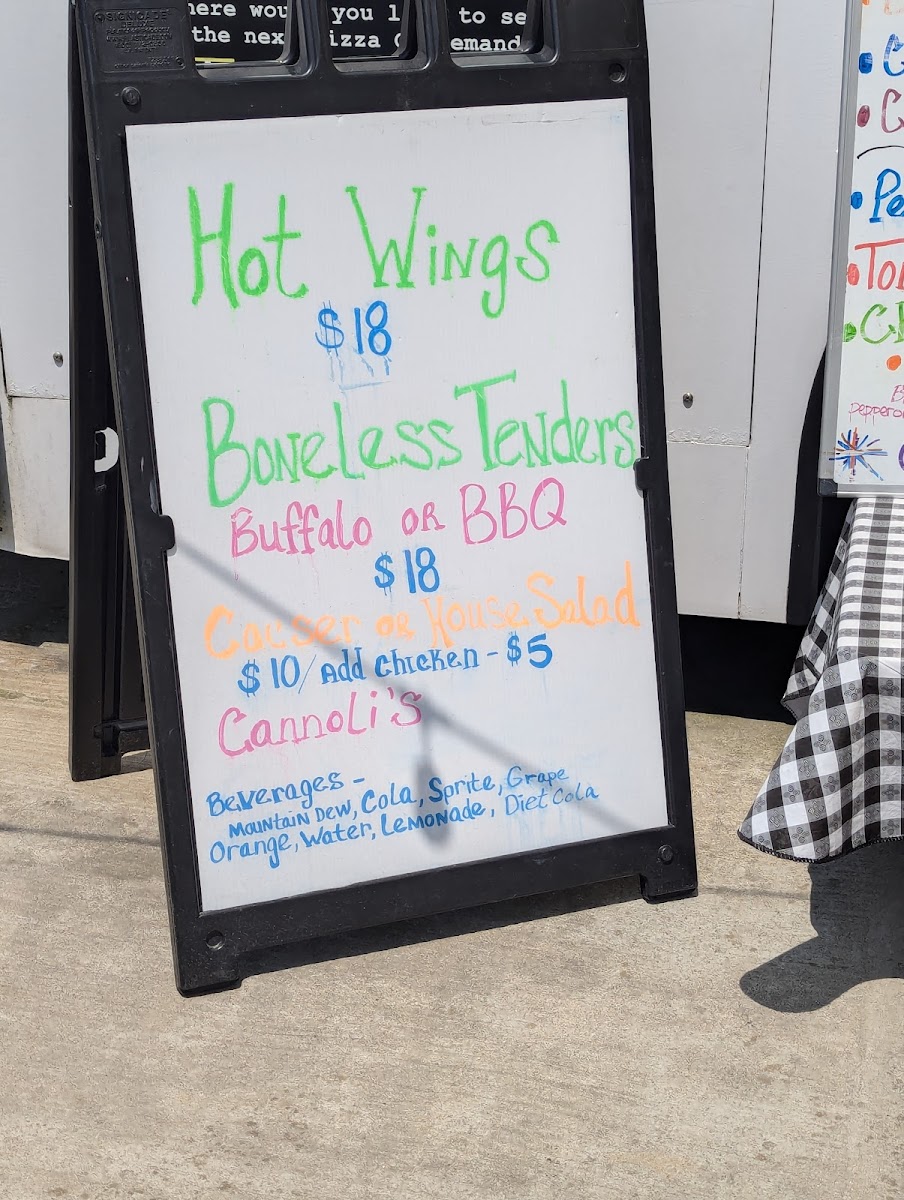 SIGNICADE
DELUXE
here wou you l to se
the nex izza emand
Hot Wings
$18
Boneless Tenders
Buffalo or BBQ
$18
Caeser or House Salad
$10/Add Chicken - $5
Cannoli's
Beverages -
Mountain Dew, Cola, Sprite, Grape
Orange, Water, Lemonade, Diet Cola
Pe
To
pepperon